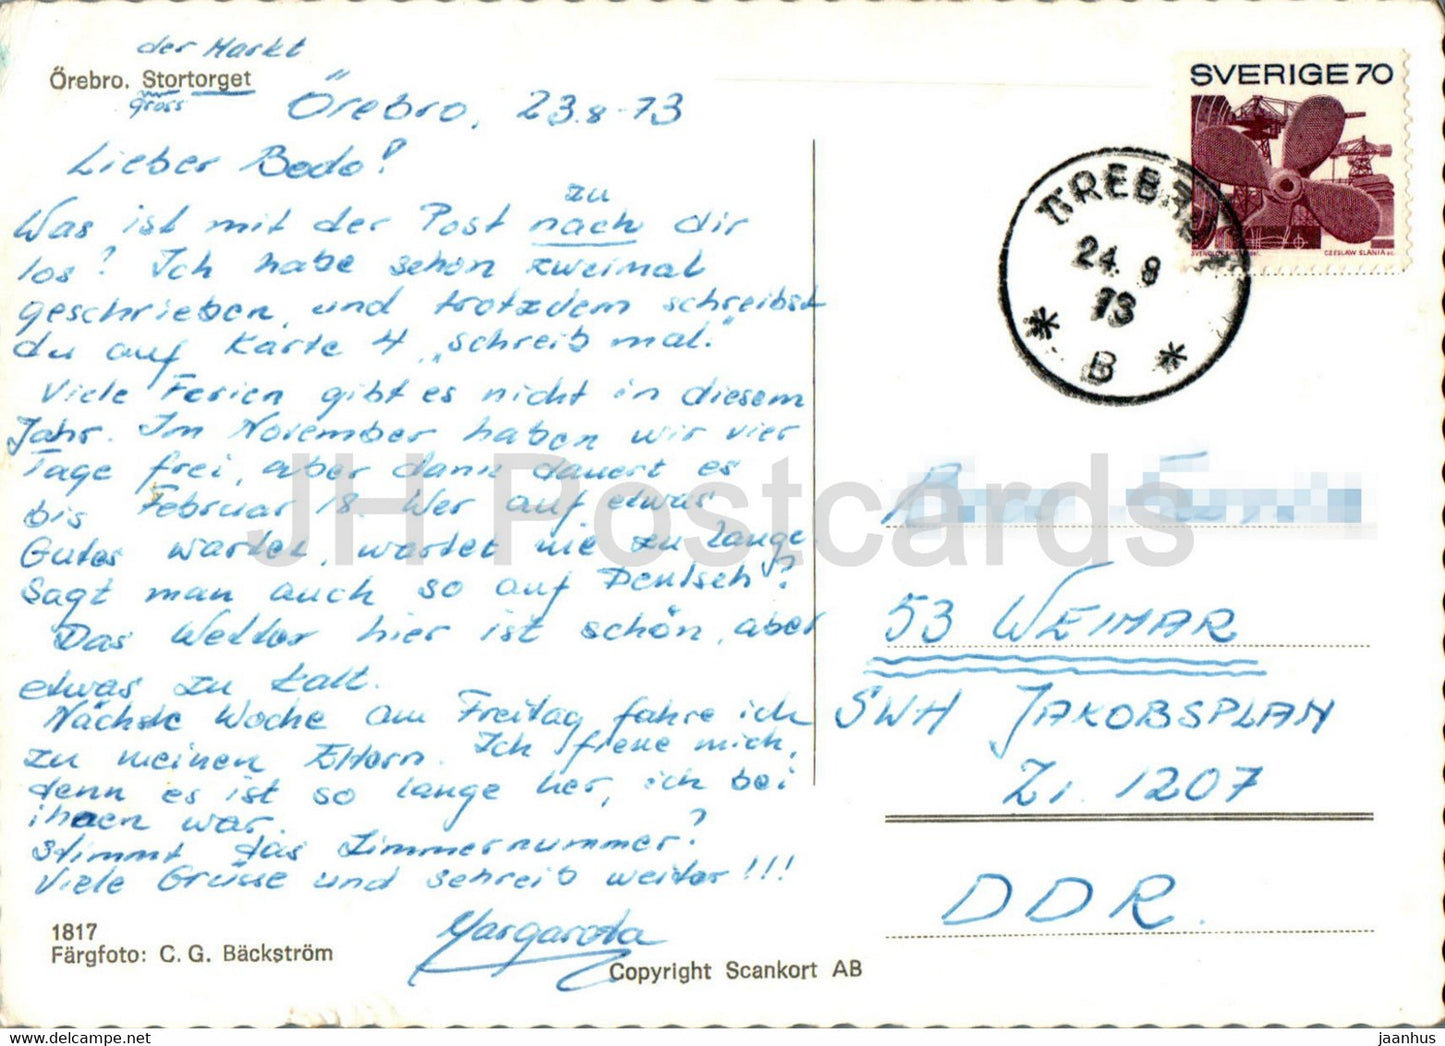 der Markt
Örebro. Stortorget
gross
Örebro, 23.8-73
Lieber Bodo!
zu
Was ist mit der Post nach dir
los? Ich habe schon zweimal
geschrieben, und trotzdem schreibst
du auf Karte 4 „schreib mal."
Viele Ferien gibt es nicht in diesem
Jahr. Im November haben wir vier
Tage frei, aber dann dauert es
bis Februar 18. Wer auf etwas
Gutes wartet, wartet nie zu lange.
Sagt man auch so auf Deutsch?
Das Wetter hier ist schön, aber
etwas zu kalt.
Nächste Woche am Freitag fahre ich
zu meinen Eltern. Ich freue mich,
denn es ist so lange her, ich bei
ihnen war.
Stimmt das Zimmernummer?
Viele Grüsse und schreib weiter!!!
Margareta
1817
Färgfoto: C. G. Bäckström
Copyright Scankort AB
SVERIGE 70
CZESLAW SLANIA sc.
ÖREBRO
24. 8
73
* B *
53 WEIMAR
SWH JAKOBSPLAN
Zi. 1207
DDR.
JH Postcards
HipPostcard.com
jaanhus